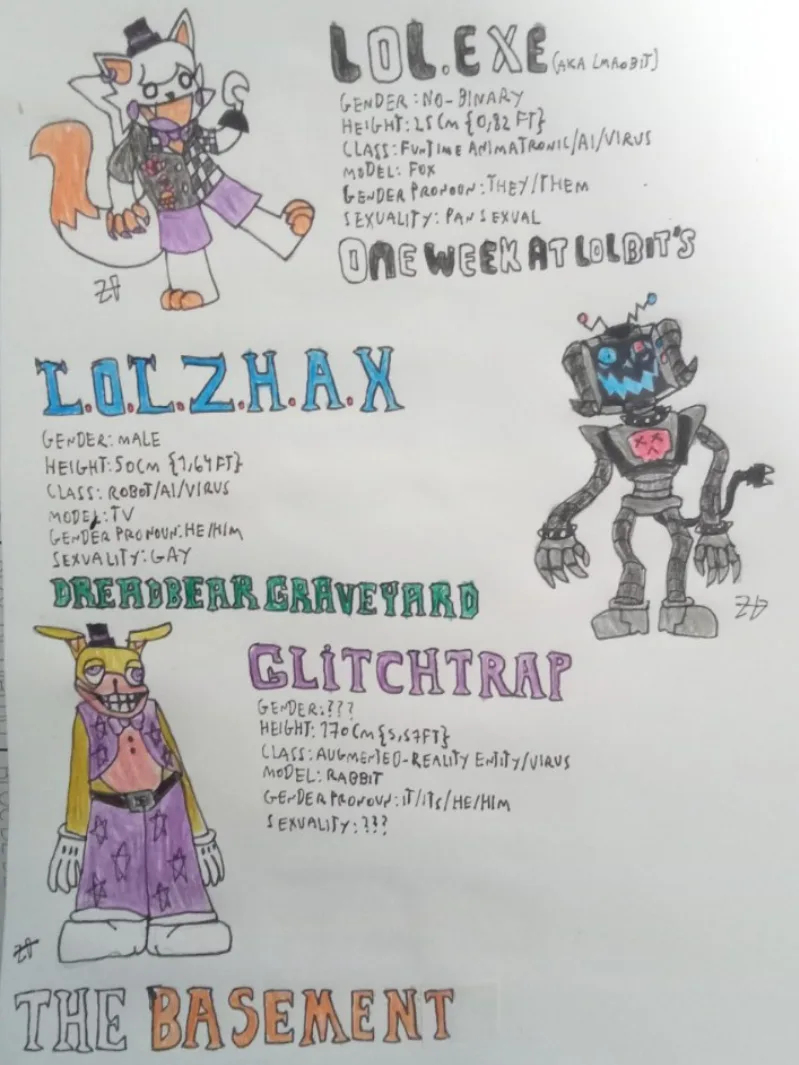 LOL.EXE (AKA LMAOBIT)
GENDER: NO-BINARY
HEIGHT: 25CM {0,82 FT}
CLASS: FUNTIME ANIMATRONIC/AI/VIRUS
MODEL: FOX
GENDER PRONOUN: THEY/THEM
SEXUALITY: PANSEXUAL
ONE WEEK AT LOLBIT'S
L.O.L.Z.H.A.X
GENDER: MALE
HEIGHT: 50CM {1,64FT}
CLASS: ROBOT/AI/VIRUS
MODEL: TV
GENDER PRONOUN: HE/HIM
SEXUALITY: GAY
DREADBEAR GRAVEYARD
GLITCHTRAP
GENDER: ???
HEIGHT: 170CM {5,57FT}
CLASS: AUGMENTED-REALITY ENTITY/VIRUS
MODEL: RABBIT
GENDER PRONOUN: IT/ITS/HE/HIM
SEXUALITY: ???
THE BASEMENT